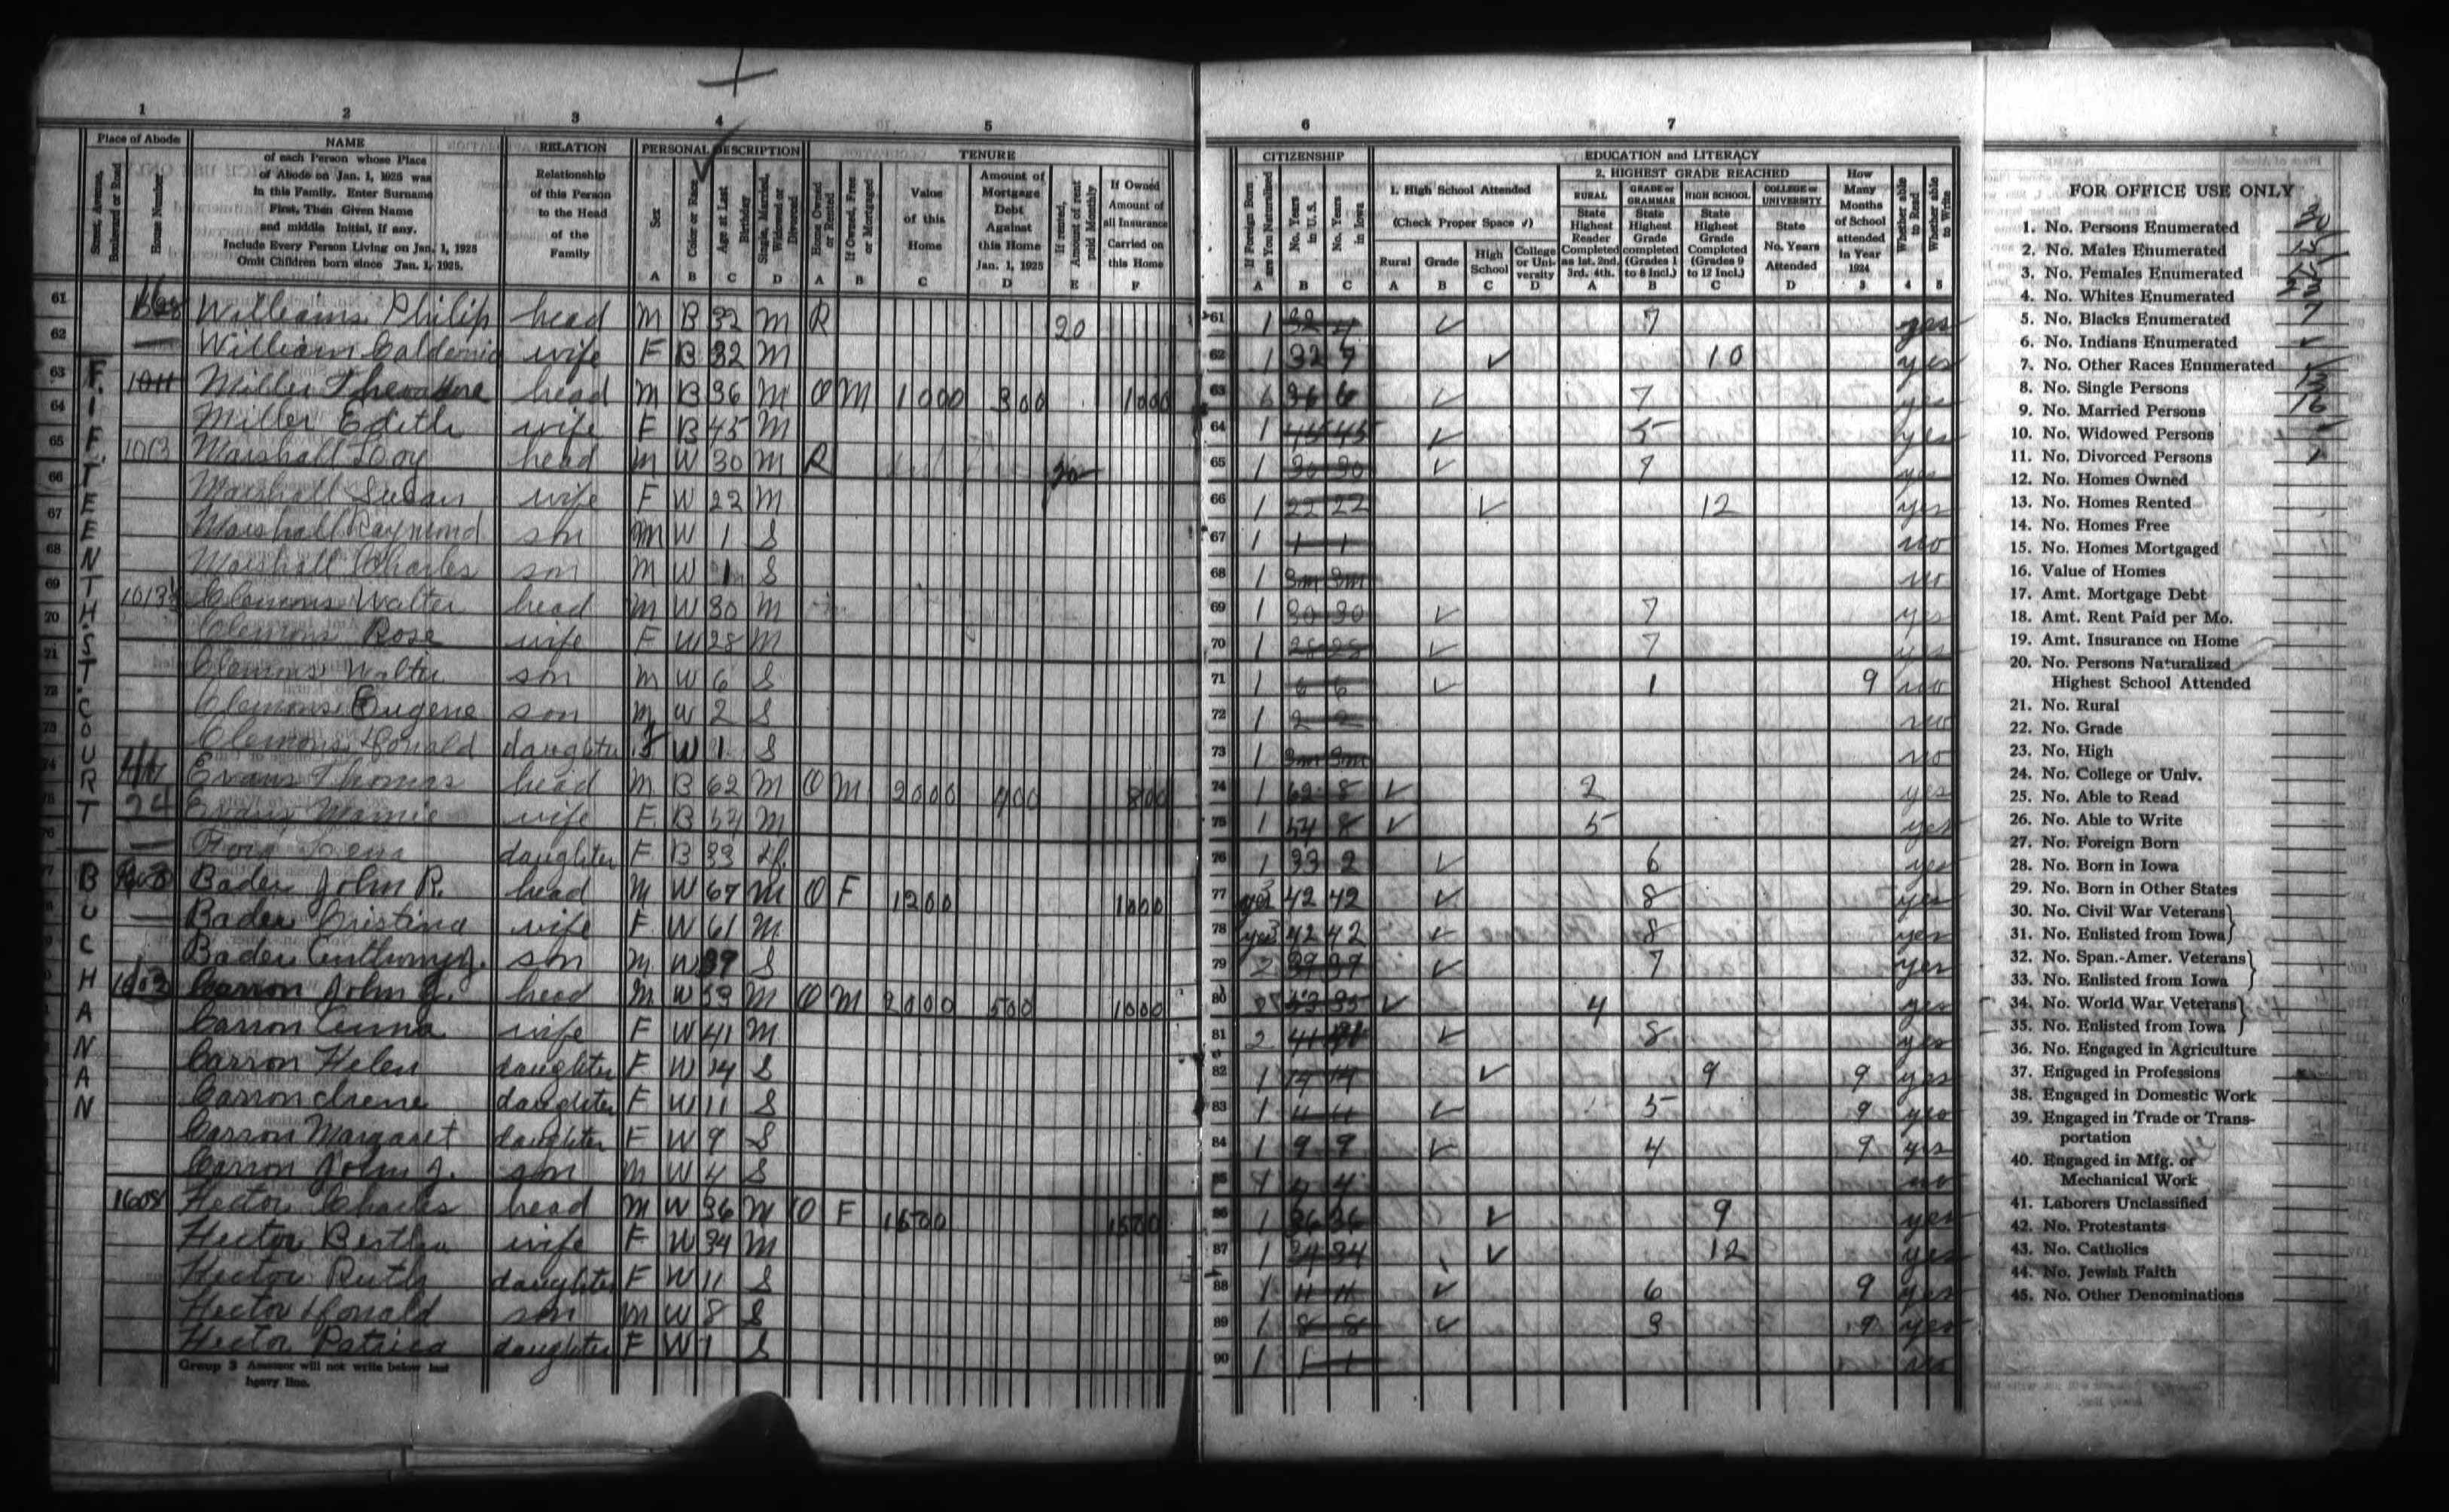 1 2 3 4 5
Place of Abode
Street, Avenue, Boulevard or Road
House Number
NAME
of each Person whose Place
of Abode on Jan. 1, 1925 was
in this Family. Enter Surname
First, Then Given Name
and middle Initial, If any.
Include Every Person Living on Jan. 1, 1925
Omit Children born since Jan. 1, 1925.
RELATION
Relationship
of this Person
to the Head
of the
Family
PERSONAL DESCRIPTION
Sex
Color or Race
Age at Last Birthday
Single, Married, Widowed or Divorced
A B C D
TENURE
Home Owned or Rented
If Owned, Free or Mortgaged
Value
of this
Home
Amount of
Mortgage
Debt
Against
this Home
Jan. 1, 1925
If rented, Amount of rent paid Monthly
If Owned
Amount of
all Insurance
Carried on
this Home
A B C D E F
FIFTEENTH ST. COURT
BUCHANAN
61 Williams Philip head M B 32 M R 20
62 William wife F B 32 M
63 1011 Miller head M B 36 M O M 1000 300 1000
64 Miller Edith wife F B 45 M
65 1013 Marshall Loy head M W 30 M R 20
66 Marshall Susan wife F W 22 M
67 Marshall Raymond son M W 1 S
68 Marshall Charles son M W 1 S
69 1013½ Clemons Walter head M W 30 M
70 Clemons Rose wife F W 28 M
71 Clemons Walter son M W 6 S
72 Clemons Eugene son M W 2 S
73 Clemons Donald daughter F W 1 S
74 Evans Thomas head M B 62 M O M 2000 400 800
75 Evans Mamie wife F B 54 M
76 daughter F B 33
77 Bader John R. head M W 67 M O F 1200 1000
Bader Cristina wife F W 61 M
Bader Anthony J. son M W 39 S
1602 Carron John J. head M W 53 M O M 2000 500 1000
Carron Anna wife F W 41 M
Carron Helen daughter F W 14 S
Carron Irene daughter F W 11 S
Carron Margaret daughter F W 9 S
Carron John J. son M W 4 S
1608 Hector Charles head M W 36 M O F 1500 1500
Hector Bertha wife F W 34 M
Hector Ruth daughter F W 11 S
Hector Donald son M W 8 S
Hector Patrica daughter F W 1 S
Group 3 Assessor will not write below last
heavy line.
6 7
CITIZENSHIP
If Foreign Born are You Naturalized
No. Years in U. S.
No. Years in Iowa
A B C
EDUCATION and LITERACY
1. High School Attended
(Check Proper Space ✓)
Rural Grade High School College or University
A B C D
2. HIGHEST GRADE REACHED
RURAL
State Highest Reader Completed as 1st. 2nd. 3rd. 4th.
GRADE or GRAMMAR
State Highest Grade completed (Grades 1 to 8 Incl.)
HIGH SCHOOL
State Highest Grade Completed (Grades 9 to 12 Incl.)
COLLEGE or UNIVERSITY
State No. Years Attended
A B C D
How Many Months of School attended in Year 1924
Whether able to Read
Whether able to Write
3 4 5
61 1 32 4 ✓ 7 yes
62 1 32 7 ✓ 10 yes
63 1 36 6 ✓ 7 yes
64 1 45 45 ✓ 5 yes
65 1 30 30 ✓ 7 yes
66 1 22 22 ✓ 12 yes
67 1 1 1 no
68 1 3m 3m no
69 1 30 30 ✓ 7 yes
70 1 28 28 ✓ 7 yes
71 1 6 6 ✓ 1 9 no
72 1 2 2 no
73 1 3m 3m no
74 1 62 8 ✓ 2 yes
75 1 54 8 ✓ 5 yes
76 1 33 2 ✓ 6 yes
77 yes 3 42 42 ✓ 8 yes
78 yes 3 42 42 ✓ 8 yes
79 2 39 39 ✓ 7 yes
80 53 35 ✓ 4 yes
81 2 41 41 ✓ 8 yes
82 1 14 14 ✓ 9 9 yes
83 1 11 11 ✓ 5 9 yes
84 1 9 9 ✓ 4 9 yes
85 1 4 4 no
86 1 36 36 ✓ 9 yes
87 1 34 34 ✓ 12 yes
88 1 11 11 ✓ 6 9 yes
89 1 8 8 ✓ 3 9 yes
90 1 1 1 no
FOR OFFICE USE ONLY
1. No. Persons Enumerated 30
2. No. Males Enumerated 15
3. No. Females Enumerated 15
4. No. Whites Enumerated 23
5. No. Blacks Enumerated 7
6. No. Indians Enumerated
7. No. Other Races Enumerated
8. No. Single Persons 13
9. No. Married Persons 16
10. No. Widowed Persons
11. No. Divorced Persons 1
12. No. Homes Owned
13. No. Homes Rented
14. No. Homes Free
15. No. Homes Mortgaged
16. Value of Homes
17. Amt. Mortgage Debt
18. Amt. Rent Paid per Mo.
19. Amt. Insurance on Home
20. No. Persons Naturalized
Highest School Attended
21. No. Rural
22. No. Grade
23. No. High
24. No. College or Univ.
25. No. Able to Read
26. No. Able to Write
27. No. Foreign Born
28. No. Born in Iowa
29. No. Born in Other States
30. No. Civil War Veterans
31. No. Enlisted from Iowa
32. No. Span.-Amer. Veterans
33. No. Enlisted from Iowa
34. No. World War Veterans
35. No. Enlisted from Iowa
36. No. Engaged in Agriculture
37. Engaged in Professions
38. Engaged in Domestic Work
39. Engaged in Trade or Trans-
portation
40. Engaged in Mfg. or
Mechanical Work
41. Laborers Unclassified
42. No. Protestants
43. No. Catholics
44. No. Jewish Faith
45. No. Other Denominations